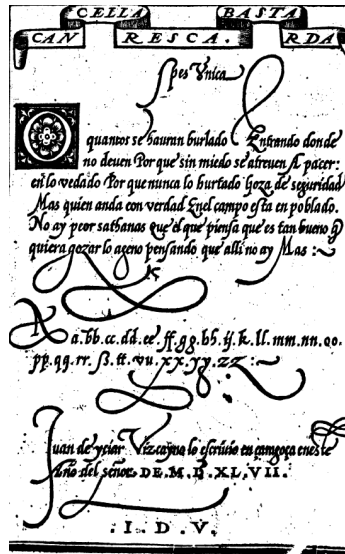 CELLA BASTA
CAN RESCA. RDA
Spes Vnica
O quantos se hauran burlado Entrando donde
no deuen Por que sin miedo se atreuen A pacer:
en lo vedado Por que nunca lo hurtado Goza de seguridad
Mas quien anda con verdad Enel campo esta en poblado.
No ay peor sathanas que el que piensa que es tan bueno
quiera gozar lo ageno pensando que alli no ay Mas :~
A a.bb.cc.dd.ee ff.gg.hh.ij.k.ll.mm.nn.oo.
pp.qq.rr.ß.tt.vu.xx.yy.zz :~
Juan de yciar Vizcayno lo escriuio en çaragoça eneste
Año del señor DE.M.D.XL.VII.
.I.D.V.